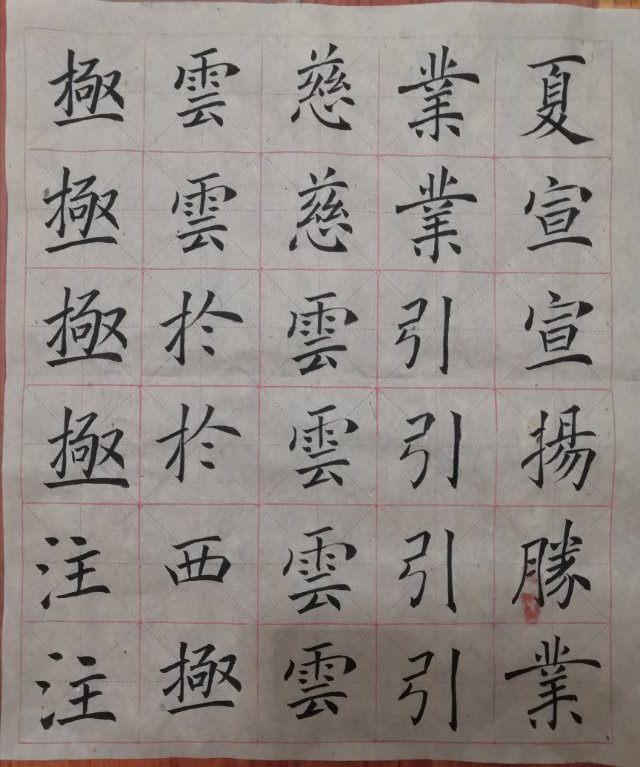 夏宣宣揚勝業
業業引引引引
慈慈雲雲雲雲
雲雲於於西極
極極極極注注